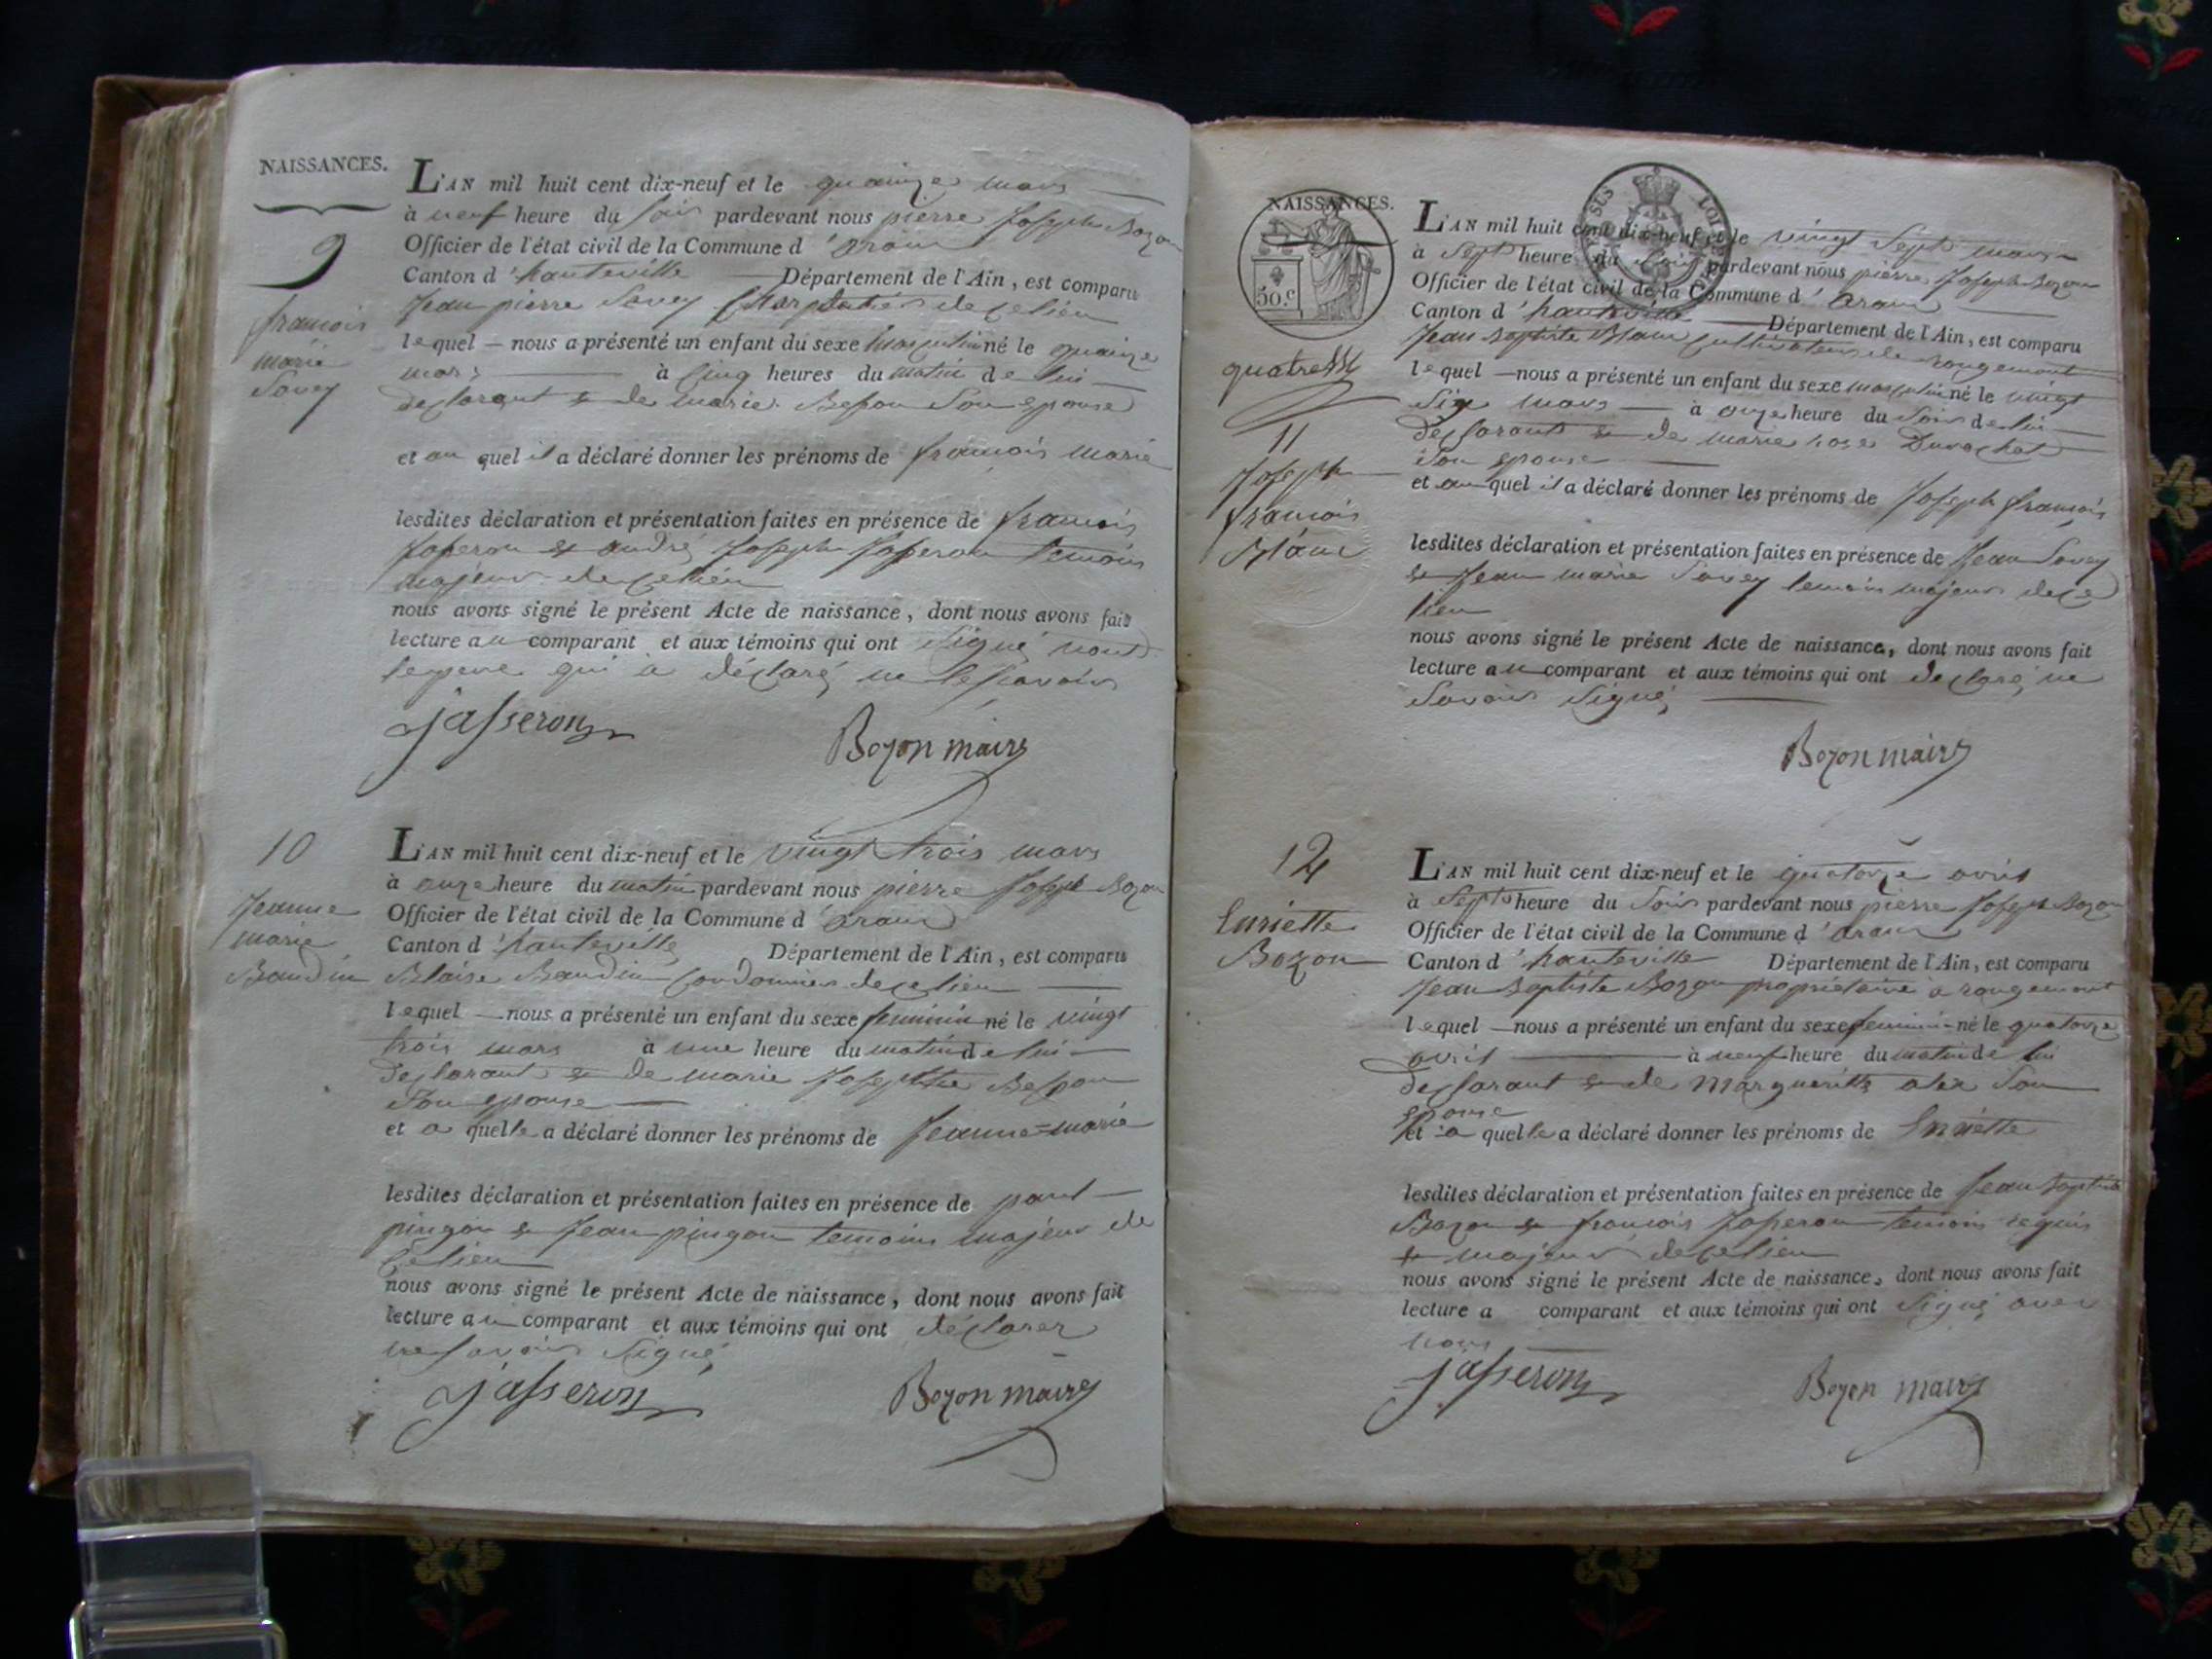 NAISSANCES.
9
francois
marie
Savey
L'AN mil huit cent dix-neuf et le quainze mars
à neuf heure du soir pardevant nous pierre Joseph Bozon
Officier de l'état civil de la Commune d'aranc
Canton d'hauteville Département de l'Ain, est comparu
Jean pierre Savey Charpentier de ce lieu
lequel nous a présenté un enfant du sexe masculin né le quainze
mars à cinq heures du matin de lui
declarant & de marie Besson son epouse
et au quel il a déclaré donner les prénoms de francois marie
lesdites déclaration et présentation faites en présence de francois
Josseron & andré Joseph Josseron temoins
majeurs de ce lieu
nous avons signé le présent Acte de naissance, dont nous avons fait
lecture au comparant et aux témoins qui ont signé nont
le pere qui a déclaré ne le savoir
jasseron
Bozon maire
10
Jeanne
marie
Baudin
L'AN mil huit cent dix-neuf et le vingt trois mars
à onze heure du matin pardevant nous pierre Joseph Bozon
Officier de l'état civil de la Commune d'aranc
Canton d'hauteville Département de l'Ain, est comparu
Blaise Baudin Cordonnier de ce lieu
lequel nous a présenté un enfant du sexe feminin né le vingt
trois mars à une heure du matin de lui
declarant & de marie Josephte Besson
son epouse
et a quelle a déclaré donner les prénoms de Jeanne=marie
lesdites déclaration et présentation faites en présence de paul
pingon & Jean pingon temoins majeur de
ce lieu
nous avons signé le présent Acte de naissance, dont nous avons fait
lecture au comparant et aux témoins qui ont déclarer
ne savoir signé
jasseron
Bozon maire
NAISSANCES.
50.c
quatre
11
Joseph
francois
Blanc
L'AN mil huit cent dix-neuf et le vingt sept mars
à sept heure du soir pardevant nous pierre Joseph Bozon
Officier de l'état civil de la Commune d'aranc
Canton d'hauteville Département de l'Ain, est comparu
Jean Baptiste Blanc cultivateur de rougemont
lequel nous a présenté un enfant du sexe masculin né le vingt
six mars à onze heure du soir de lui
declarant & de marie rose Durochat
son epouse
et au quel il a déclaré donner les prénoms de Joseph francois
lesdites déclaration et présentation faites en présence de Jean Savey
& Jean marie Savey temoins majeurs de ce
lieu
nous avons signé le présent Acte de naissance, dont nous avons fait
lecture au comparant et aux témoins qui ont declaré ne
savoir signé
Bozon maire
12
Enriette
Bozon
L'AN mil huit cent dix-neuf et le quatorze avril
à sept heure du soir pardevant nous pierre Joseph Bozon
Officier de l'état civil de la Commune d'aranc
Canton d'hauteville Département de l'Ain, est comparu
Jean Baptiste Bozon propriétaire a rougemont
lequel nous a présenté un enfant du sexe feminin né le quatorze
avril à neuf heure du matin de lui
declarant & de Margueritte son
epouse
et a quelle a déclaré donner les prénoms de Enriette
lesdites déclaration et présentation faites en présence de Jean Baptiste
Bozon & francois Josseron temoins requis
& majeurs de ce lieu
nous avons signé le présent Acte de naissance, dont nous avons fait
lecture a comparant et aux témoins qui ont signé avec
nous
jasseron
Bozon maire